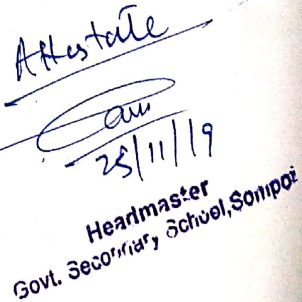 Attestate
25/11/19
Headmaster
Govt. Secondary School, Sompoi